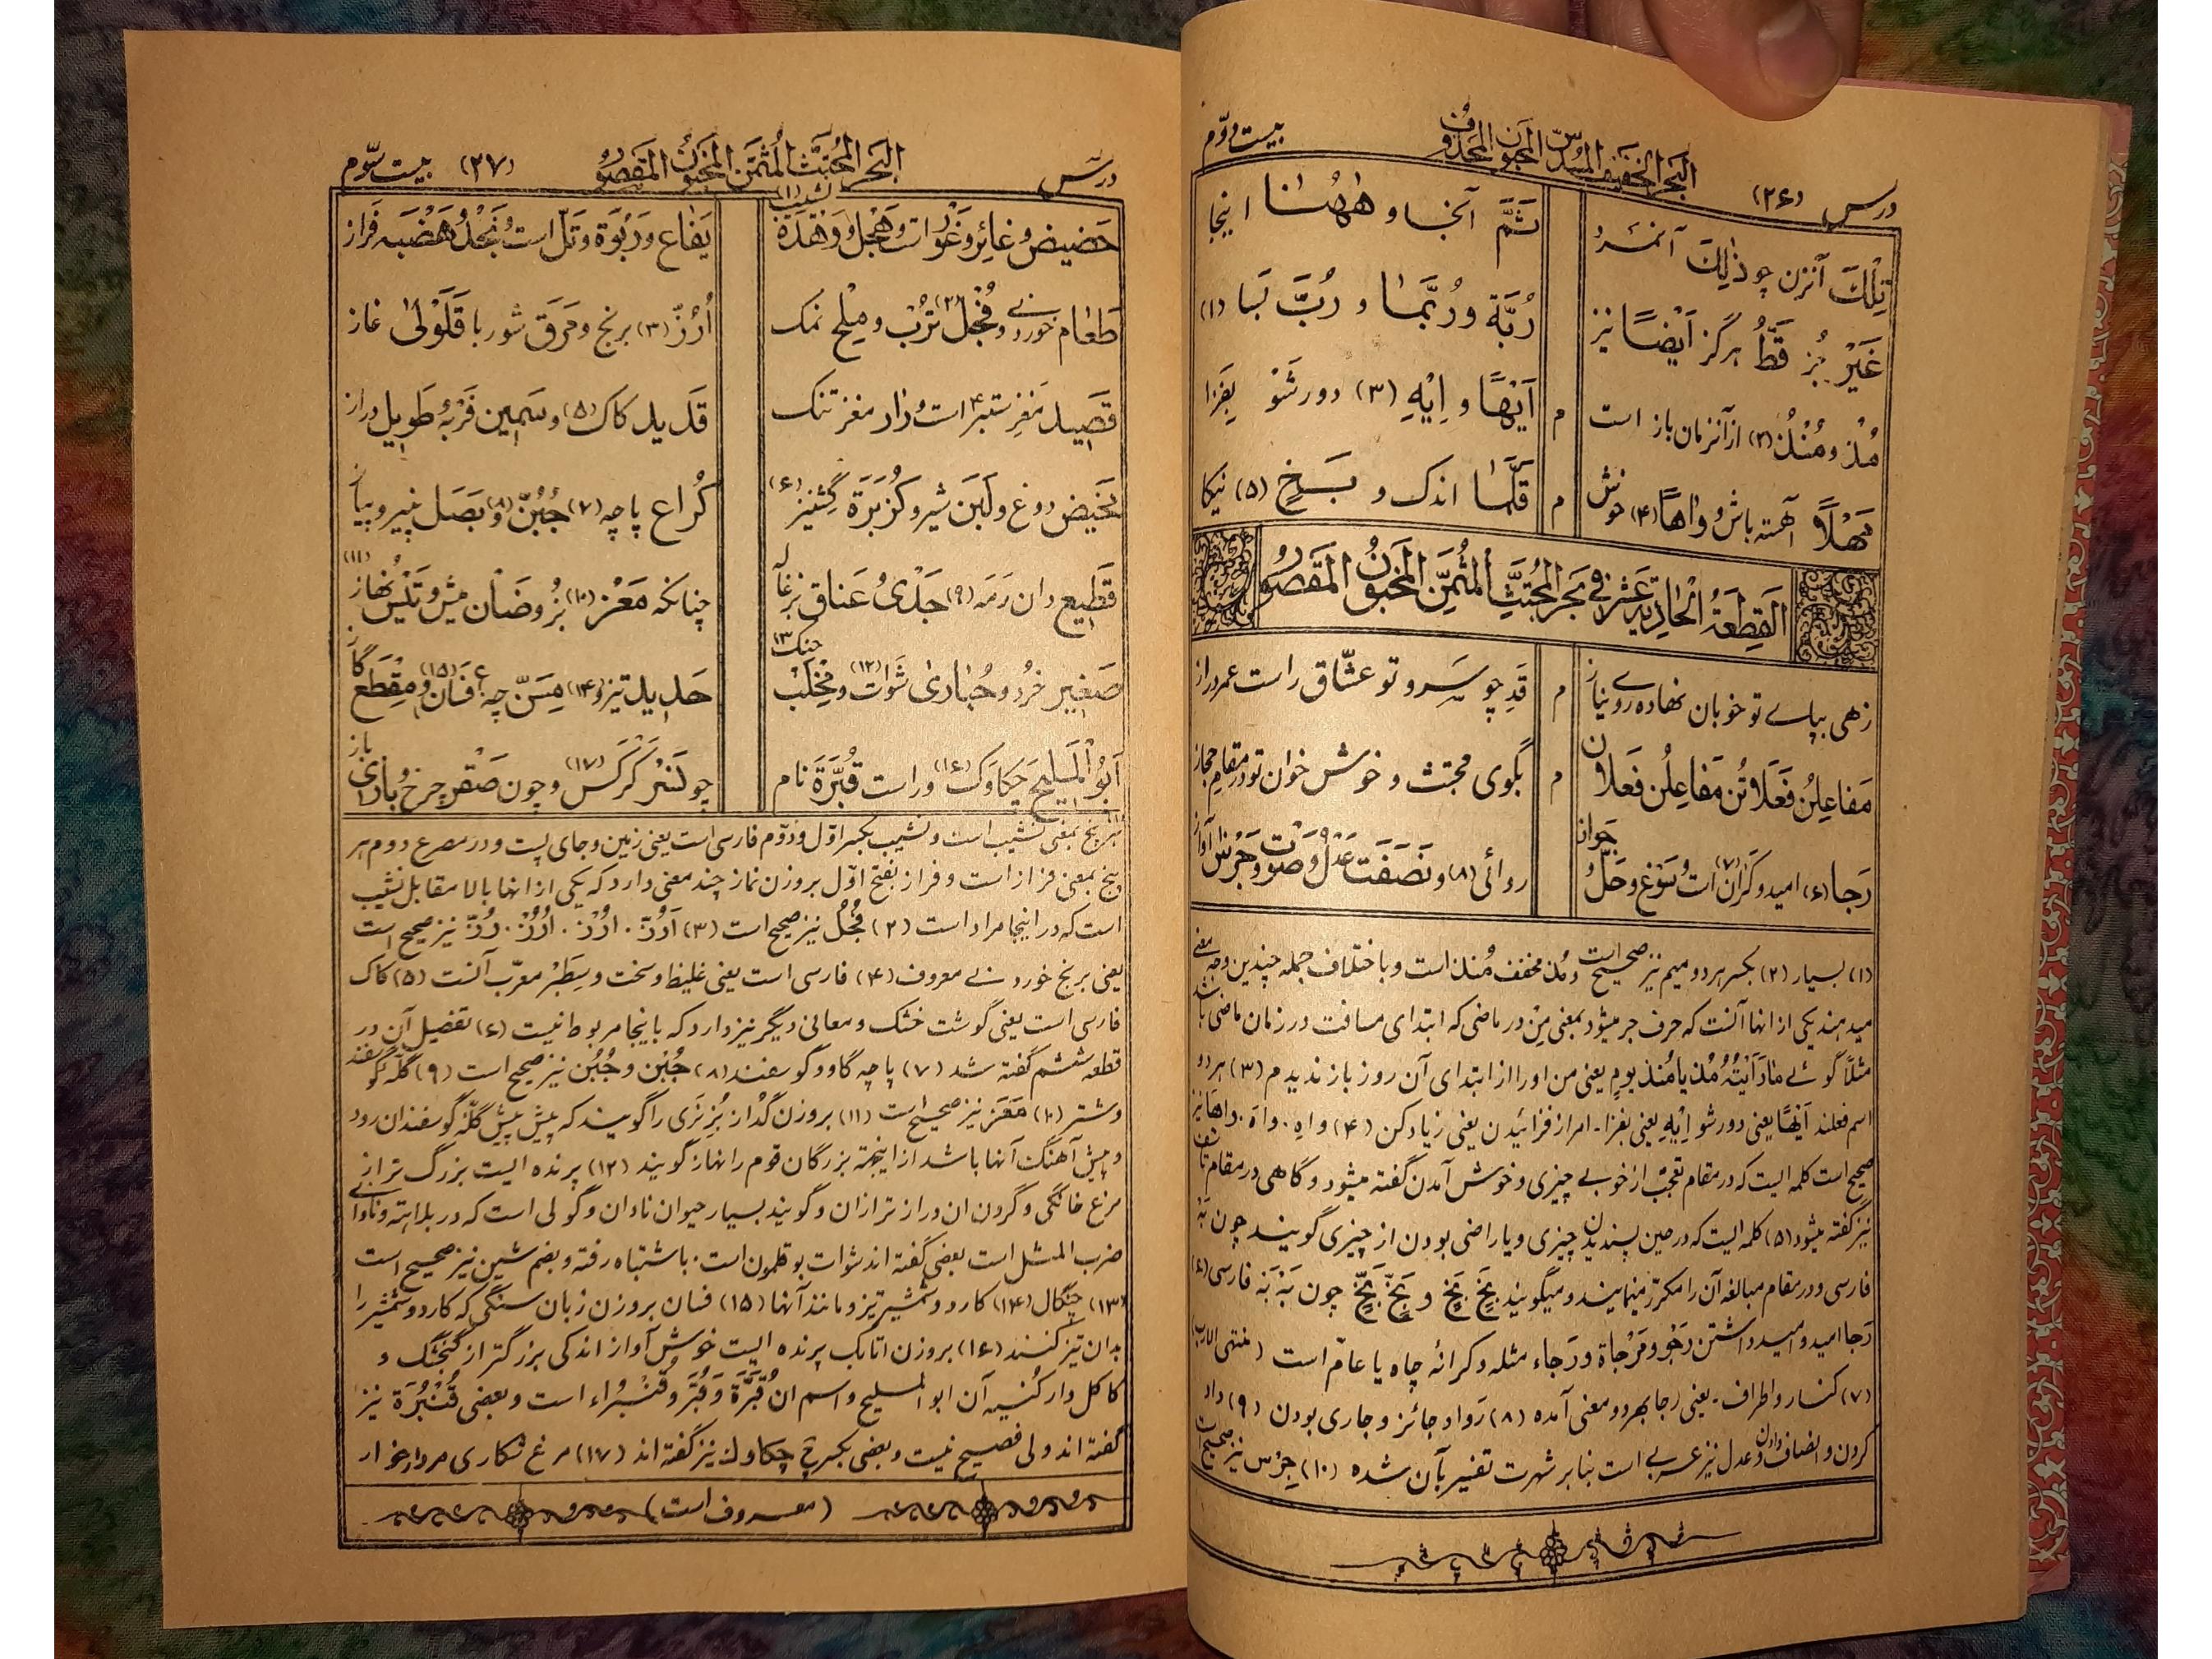 درس (۲۶) البحر الخفيف المسدس المخبون المحذوف بیست و دوّم
تِلْكَ آنزن چو ذٰلِكَ آنمرد ثَمَّ آنجا و هٰهُنا اینجا
غَیْرَ جُز قَطُّ هرگز اَیْضًا نیز رُبَّة و رُبَّمٰا و رُبَّ بَسا (۱)
مُذ و مُنْذُ (۲) از آنزمان باز است م اَیْهًا و اِیْهِ (۳) دور شَوْ بِفَزا
مَهْلًا آهسته باش و وٰاهًا (۴) خوش م قَلَّمٰا اندک و بَخٍ (۵) نیکا
اَلقِطعَةُ الْحٰادِیَةَ عَشَر فی بَحرِ الْمُجتَثِّ الْمُثَمَّنِ الْمَخبُونِ الْمَقصُور
زهی بپای تو خوبان نهاده روی نیاز م قَدِ چو سَروِ تو عشّاق راست عمر دراز
مَفاعِلُن فَعَلاتُن مَفاعِلُن فَعَلان م بگوی مجتث و خوش خوان تو در مقام حجاز
رَجا (۶) امید و کَران (۷) است و سَوْغ و حَلّ و جواز روائی (۸) و نَصَفَت عَدْل ۹ و صَوْت و جَرْس آواز
(۱) بسیار (۲) بکسر هر دو میم نیز صحیح است و مُذ مخفف مُنذ است و با اختلاف جمله چندین وجه معنی
میدهند یکی از انها آنست که حرف جر میشود بمعنی مِنْ در ماضی که ابتدای مسافت در زمان ماضی باشد
مثلاً گوئی مٰا رَاَیْتُهُ مُذ یا مُنذ یومٍ یعنی من او را از ابتدای آن روز باز ندیدم (۳) هر دو
اسم فعلند اَیْهًا یعنی دور شو اِیْهِ یعنی بفزا. امر از فزائیدن یعنی زیاد کن (۴) واهِ. واهَ. واهَا نیز
صحیح است کلمه ایست که در مقام تعجّب از خوبی چیزی و خوش آمدن گفته میشود و گاهی در مقام تأسّف
نیز گفته میشود (۵) کلمه ایست که در حین پسندیدن چیزی و یا راضی بودن از چیزی گویند چون بَهْ
فارسی و در مقام مبالغه آن را مکرّر مینمایند و میگویند بَخٍ بَخٍ و بَخٍّ بَخٍّ چون بَهْ بَهْ فارسی (۶)
رَجا امید و امید داشتن رَجْو و مَرْجاة و رَجاء مثله و کرانۀ چاه یا عامّ است (منتهی الارب)
(۷) کنار و اطراف. یعنی رجا بهر دو معنی آمده (۸) رَوا و جائز و جاری بودن (۹) داد
کردن و انصاف دادن و عدل نیز عربی است بنا بر شهرت تفسیر بآن شده (۱۰) جِرْس نیز صحیح است
درس البحر المجتث المثمن المخبون المقصور (۲۷) بیست سوّم
حَضیض و غائِر و غَوْر است و هَجْل و وَهْدَة نشیب (۱) یَفٰاع و رَبْوَة و تَلّ است و نَجْدُ هَضْبَه فَراز
طَعٰام خوردنی و فُجْل (۲) تُرْب و مِلْح نمک اُرُزّ (۳) برنج و مَرَق شوربا قَلَوْلیٰ غاز
قَصید مَغزِ ستبر ۴ است و رٰار مغز تنک قَدید کاک (۵) و سَمین فَرْبُه طَویل دراز
مَخیض دوغ و لَبَن شیر و کُزبَرَة گِشنیز (۶) کُراع پاچه (۷) جُبُنّ (۸) و بَصَل پنیر و پیاز
قَطیع دان رَمَه (۹) جَدْی و عَناق بزغاله چنانکه مَعْز (۱۰) بُز و ضَاْن میش و تَیْس نُهاز (۱۱)
صَغیر خُرد و حُبٰاریٰ شَوات (۱۲) و مِخْلَب چنگ ۱۳ حَدید تیز و (۱۴) مِسَنّ چه؟ فَسان (۱۵) و مِقْطَع گاز
اَبُو الْمَلیح چکاوَک (۱۶) و راست قُبَّرَة نام چو نَسْر کَرکَس (۱۷) و چون صَقْر چرخ و بازی باز
هر پنج بمعنی نشیب است و نشیب بکسر اوّل و دوّم فارسی است یعنی زمین و جای پست و در مصرع دوم هر
پنج بمعنی فراز است و فراز بفتح اوّل بر وزن نماز چند معنی دارد که یکی از انها بالا مقابل نشیب
است که در اینجا مراد است (۲) فُجُل نیز صحیح است (۳) اَرُزّ. اُرْز. اُرُز. رُزّ نیز صحیح است
یعنی برنج خوردنی معروف (۴) فارسی است یعنی غلیظ و سخت و سِطَبْر معرّب آنست (۵) کاک
فارسی است یعنی گوشت خشک و معانی دیگر نیز دارد که باینجا مربوط نیست (۶) تفصیل آن در
قطعه ششم گفته شد (۷) پاچه گاو و گوسفند (۸) جُبْن و جُبُن نیز صحیح است (۹) گلّه گوسفند
و شتر (۱۰) مَعَز نیز صحیح است (۱۱) بروزن گُداز بُزِ نَری را گویند که پیش پیش گلّه گوسفندان رود
و پیش آهنگ آنها باشد از اینجهة بزرگان قوم را نهاز گویند (۱۲) پرنده ایست بزرگ تر از
مرغ خانگی و گردن ان دراز تر از ان و گویند بسیار حیوان نادان و گولی است که در بلاهت و نادانی
ضرب المثل است بعضی گفته اند شوات بوقلمون است. باشتباه رفته و بضم شین نیز صحیح است
(۱۳) چنگال (۱۴) کارد و شمشیر تیز و مانند آنها (۱۵) فسان بروزن زبان سنگی که کارد و شمشیر را
بدان تیز کنند (۱۶) بروزن اتابک پرنده ایست خوش آواز اندکی بزرگتر از گنجشک و
کاکل دار کُنیه آن ابو الملیح و اسم ان قُبَّرَة وَ قُبَّر وَ قُنْبُراء است و بعضی قُنْبُرَة نیز
گفته اند ولی فصیح نیست و بعضی بکسر چ چکاوک نیز گفته اند (۱۷) مرغ شکاری مردار خوار
(معروف است)